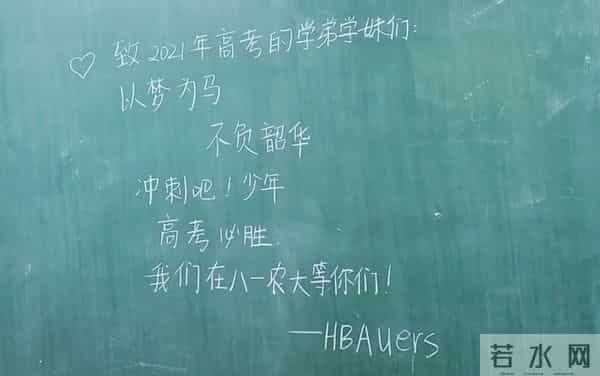 ♡ 致2021年高考的学弟学妹们:
以梦为马
不负韶华
冲刺吧!少年
高考必胜.
我们在八一农大等你们!
—HBAUers
若水网